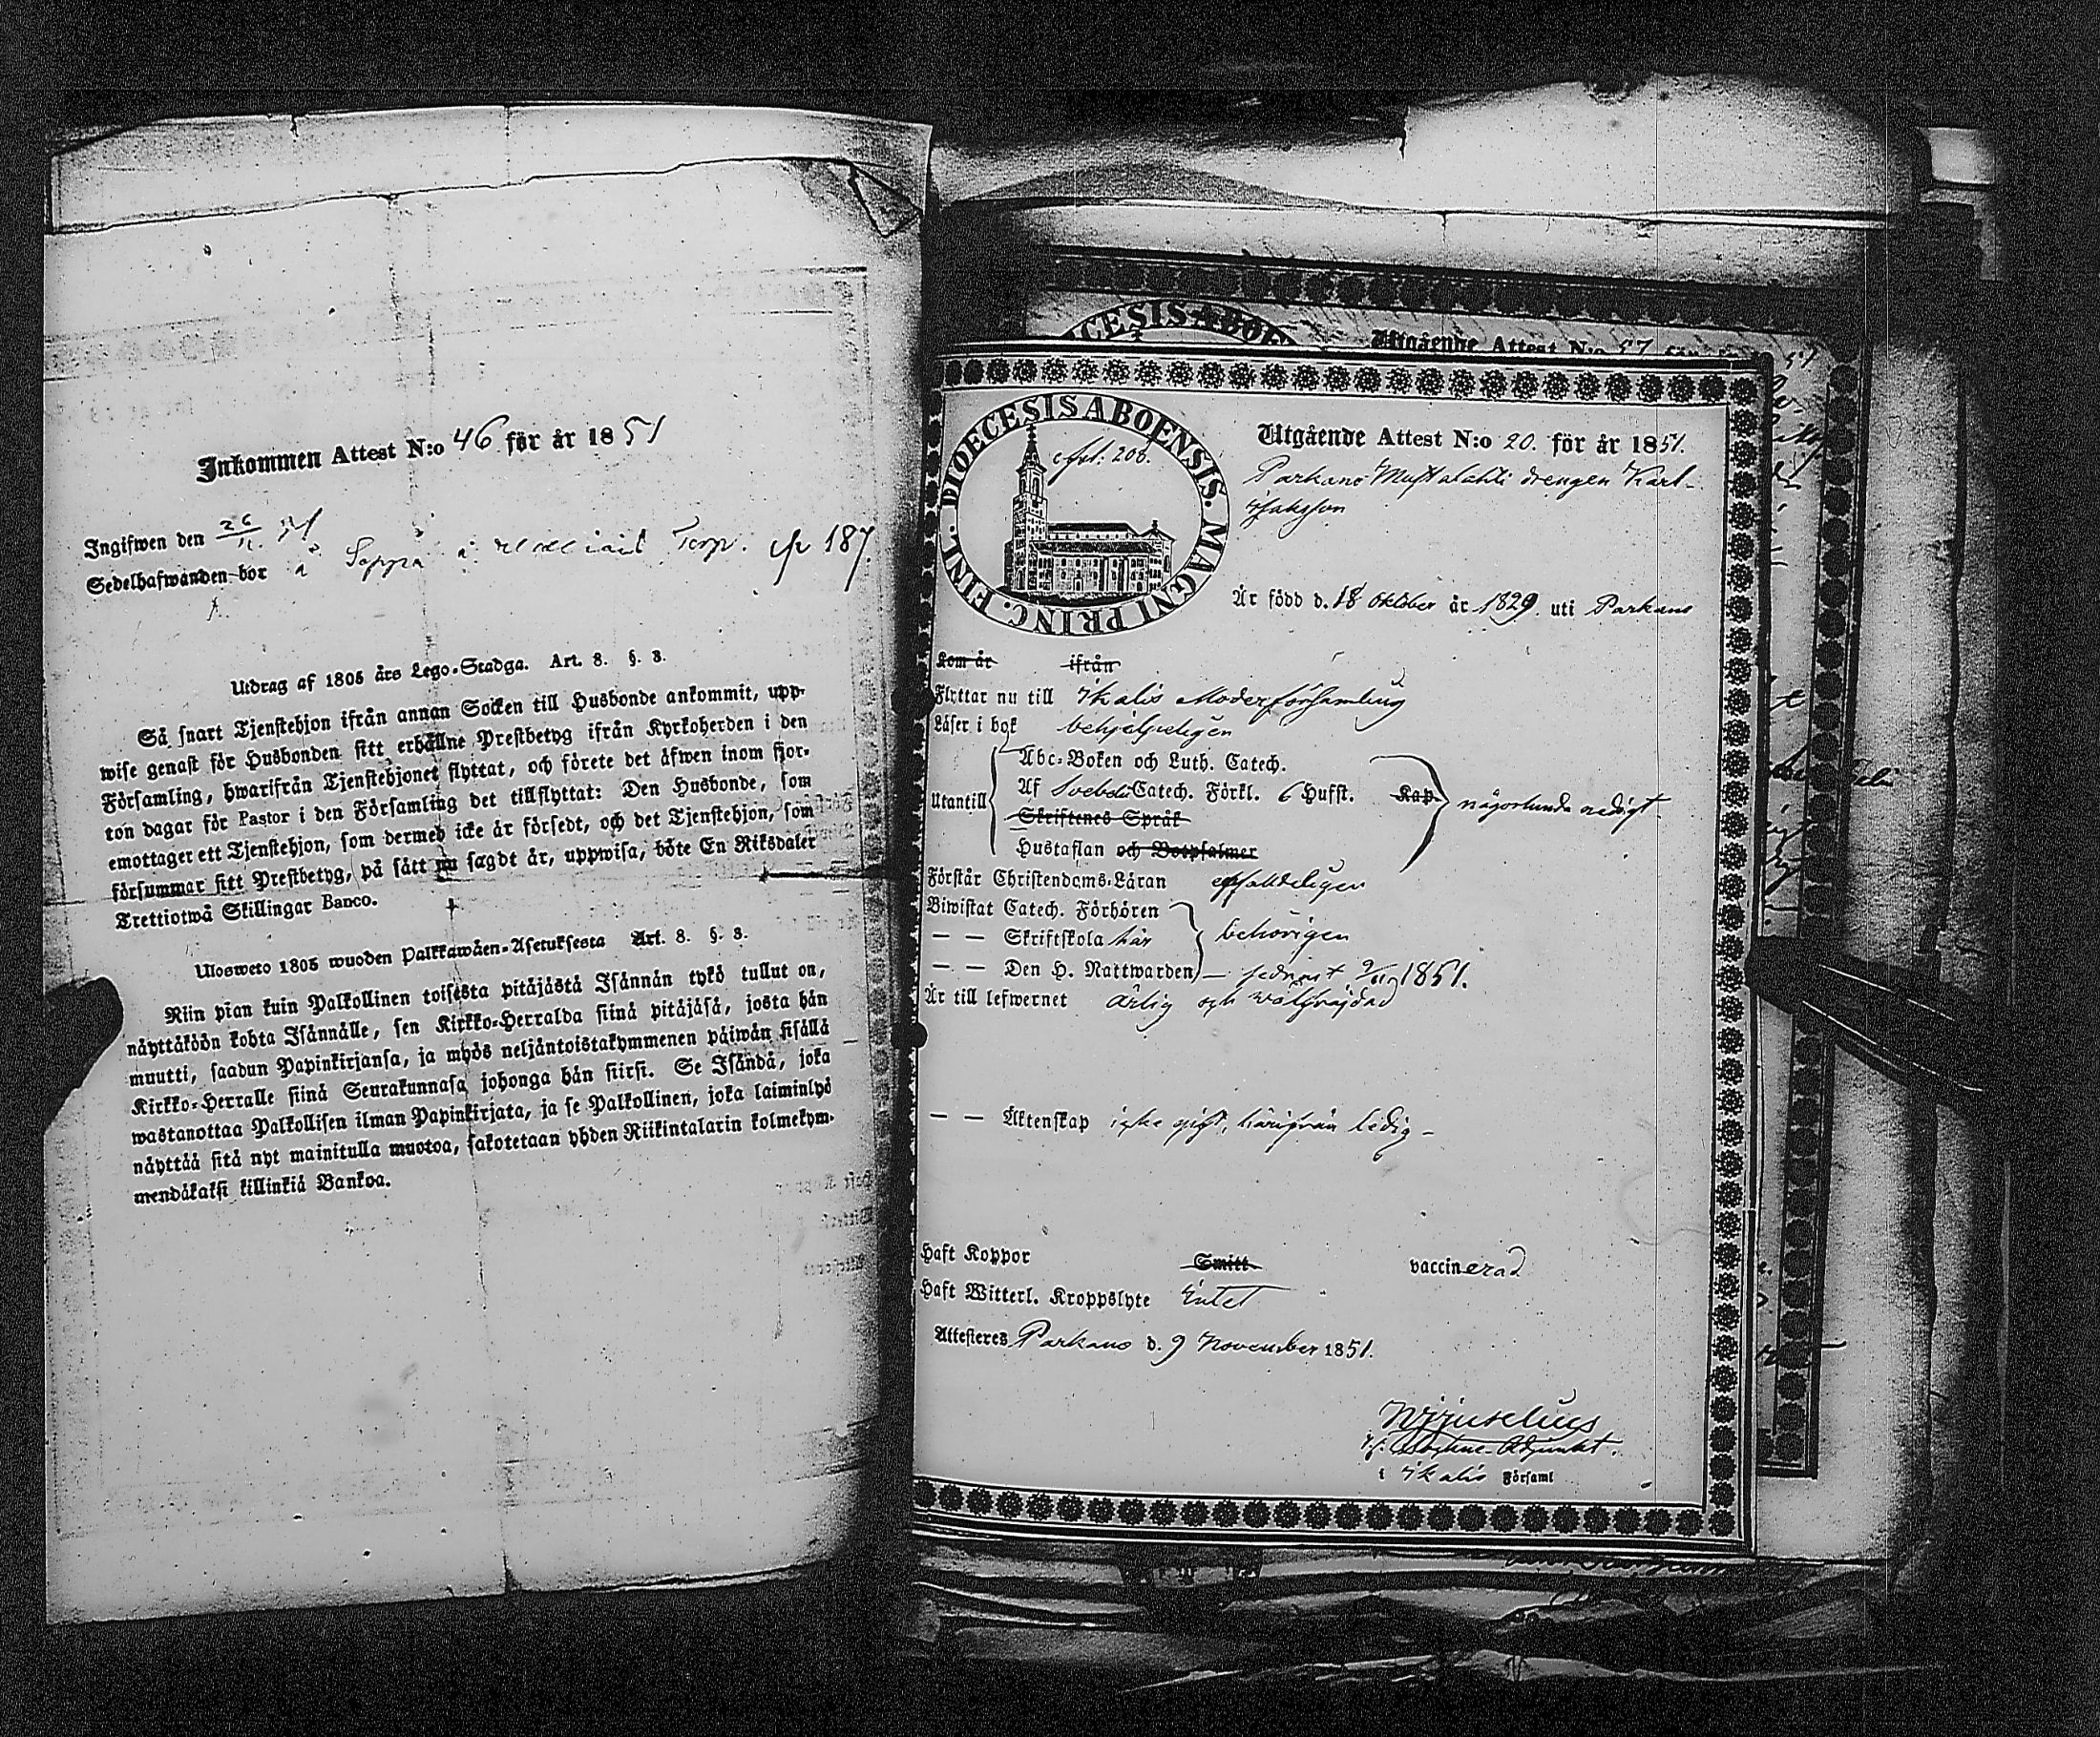 Inkommen Attest N:o 46 för år 1851
Ingifwen den 26/11 51
Sedelhafwanden bor å Torp. 187
Utdrag af 1805 års Lego-Stadga. Art. 8. §. 3.
Så snart Tjenstehjon ifrån annan Socken till Husbonde ankommit, upp-
wise genast för Husbonden sitt erhållne Prestbetyg ifrån Kyrkoherden i den
Församling, hwarifrån Tjenstehjonet flyttat, och förete det äfwen inom fjor-
ton dagar för Pastor i den Församling det tillflyttat: Den Husbonde, som
emottager ett Tjenstehjon, som dermed icke är försedt, och det Tjenstehjon, som
försummar sitt Prestbetyg, på sätt nu sagdt är, uppwisa, böte En Riksdaler
Trettiotwå Skillingar Banco.
Ulosweto 1805 wuoden Palkkawäen-Asetuksesta Art. 8. §. 3.
Niin pian kuin Palkollinen toisesta pitäjästä Isännän tykö tullut on,
näyttäköön kohta Isännälle, sen Kirkko-Herralda siinä pitäjäsä, josta hän
muutti, saadun Papinkirjansa, ja myös neljäntoistakymmenen päiwän sisällä
Kirkko-Herralle siinä Seurakunnasa johonga hän siirsi. Se Isändä, joka
wastanottaa Palkollisen ilman Papinkirjata, ja se Palkollinen, joka laiminlyö
näyttää sitä nyt mainitulla muotoa, sakotetaan yhden Riikintalarin kolmekym-
mendäkaksi killinkiä Bankoa.
Utgående Attest N:o 57 för år 51
DIOECESIS ABOENSIS. MAGNI PRINC. FINL.
200.
Utgående Attest N:o 20. för år 1851.
Parkano Mustalahti drengen Karl
Isaksson
Är född d. 18 Oktober år 1829. uti Parkano
Kom år ifrån
Flyttar nu till Ikalis Moderförsamling
Läser i bok behjelpeligen
Abc-Boken och Luth. Catech.
Utantill Af Svebelii Catech. Förkl. 6 Hufst. Kap. någorlunda redigt.
Skriftenes Språk
Hustaflan och Botpsalmer
Förstår Christendoms-Läran enfaldeligen
Biwistat Catech. Förhören
— — Skriftskola här behörigen
— — Den H. Nattwarden — sednast 9/11 1851.
Är till lefwernet ärlig och wälfräjdad
— — Äktenskap icke gift, härifrån ledig —
Haft Koppor Smitt vaccinerad
Haft Witterl. Kroppslyte Intet
Attesteras Parkano d. 9 November 1851.
Adjunkt.
i Ikalis Församl